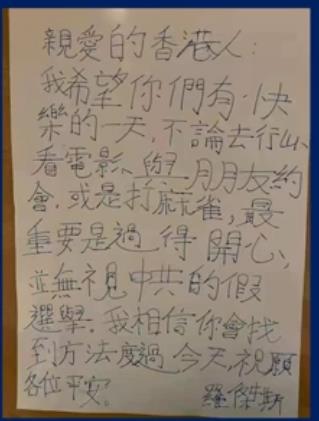 親愛的香港人：
我希望你們有快
樂的一天，不論去行山、
看電影、與朋友約
會，或是打麻雀，最
重要是過得開心、
並無視中共的假
選舉。我相信你會找
到方法度過今天，祝願
各位平安。
羅傑斯